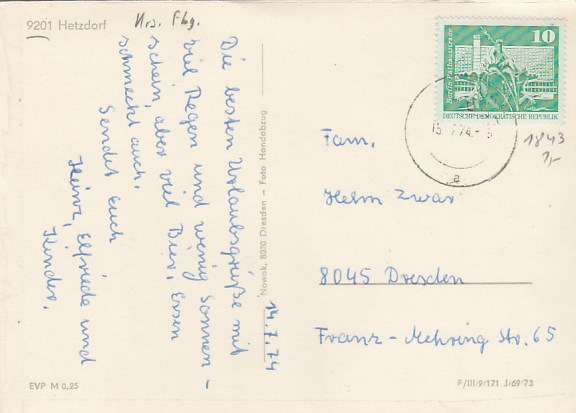 9201 Hetzdorf
Krs. Fbg.
Die besten Urlaubsgrüße mit
viel Regen und wenig Sonnen-
schein, aber viel Bier, Essen
schmeckt auch.
Sendet Euch
Heinz, Elfriede und
Kinder.
14.7.74
Nowak, 8020 Dresden – Foto Handabzug
10
Berlin, Rathausstraße
DEUTSCHE DEMOKRATISCHE REPUBLIK
15.7.74.-
a
1843
1,-
Fam.
Helm Zwar
8045 Dresden
Franz-Mehring Str. 65
EVP M 0,25
F/III/9/171 J69/73